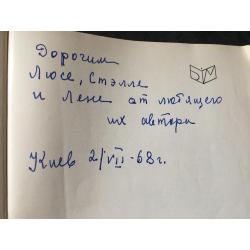 Дорогим
Люсе, Стэлле
и Лене от любящего
их автора
Киев 2/VII-68г.